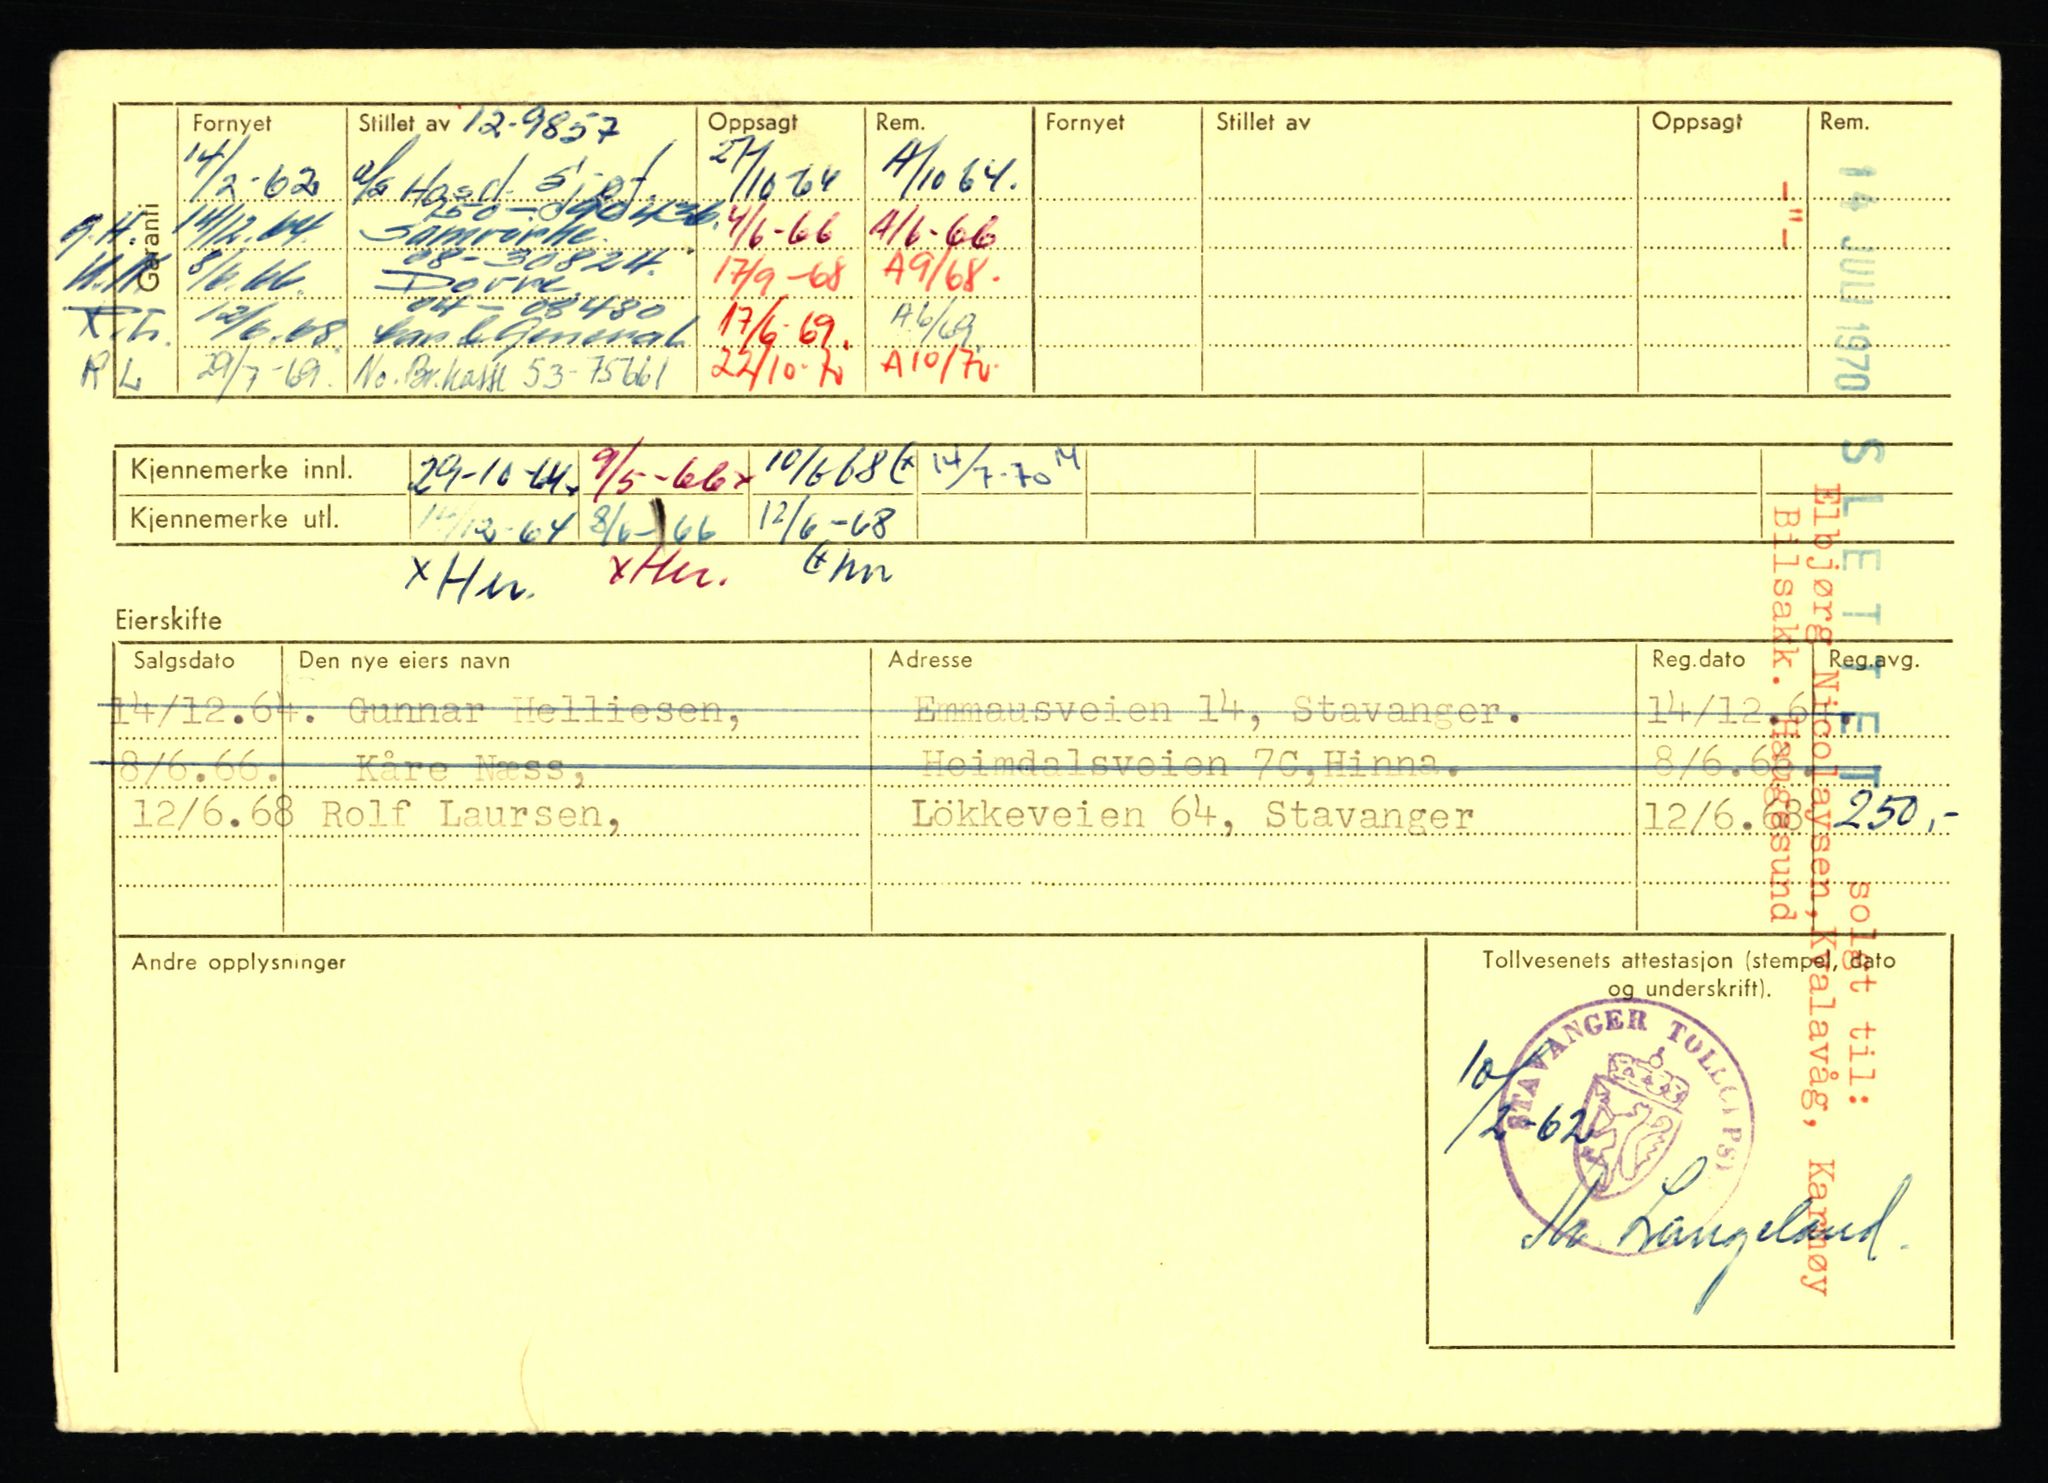 Garanti
Fornyet Stillet av 12-9857 Oppsagt Rem. Fornyet Stillet av Oppsagt Rem.
14/2-62 a/s 27/10 64 A/10 64.
G.H. 14/12.64. Samvirke. 4/6-66 A/6-66
08-308274.
8/6.66. Dovre 17/9-68 A9/68.
04-08480
12/6.68. Car & General 17/6-69. A6/69.
R L 29/7-69. No. Br.kasse 53-75661 22/10-70 A10/70.
Kjennemerke innl. 29-10-64x 9/5-66x 10/6 68 14/7-70
Kjennemerke utl. 14/12-64 8/6-66 12/6-68
Eierskifte
Salgsdato Den nye eiers navn Adresse Reg.dato Reg.avg.
14/12.64. Gunnar Helliesen, Emmausveien 14, Stavanger. 14/12.64.
8/6.66. Kåre Næss, Heimdalsveien 7C,Hinna. 8/6.66.
12/6.68 Rolf Laursen, Lökkeveien 64, Stavanger 12/6.68 250,-
Andre opplysninger
Tollvesenets attestasjon (stempel, dato
og underskrift).
STAVANGER TOLL
10/2-62
Langeland.
14 JULI 1970 SLETTET
solgt til:
Elbjørg Nicolaysen,Kvalavåg, Karmøy
-"- Bilsakk. Haugesund